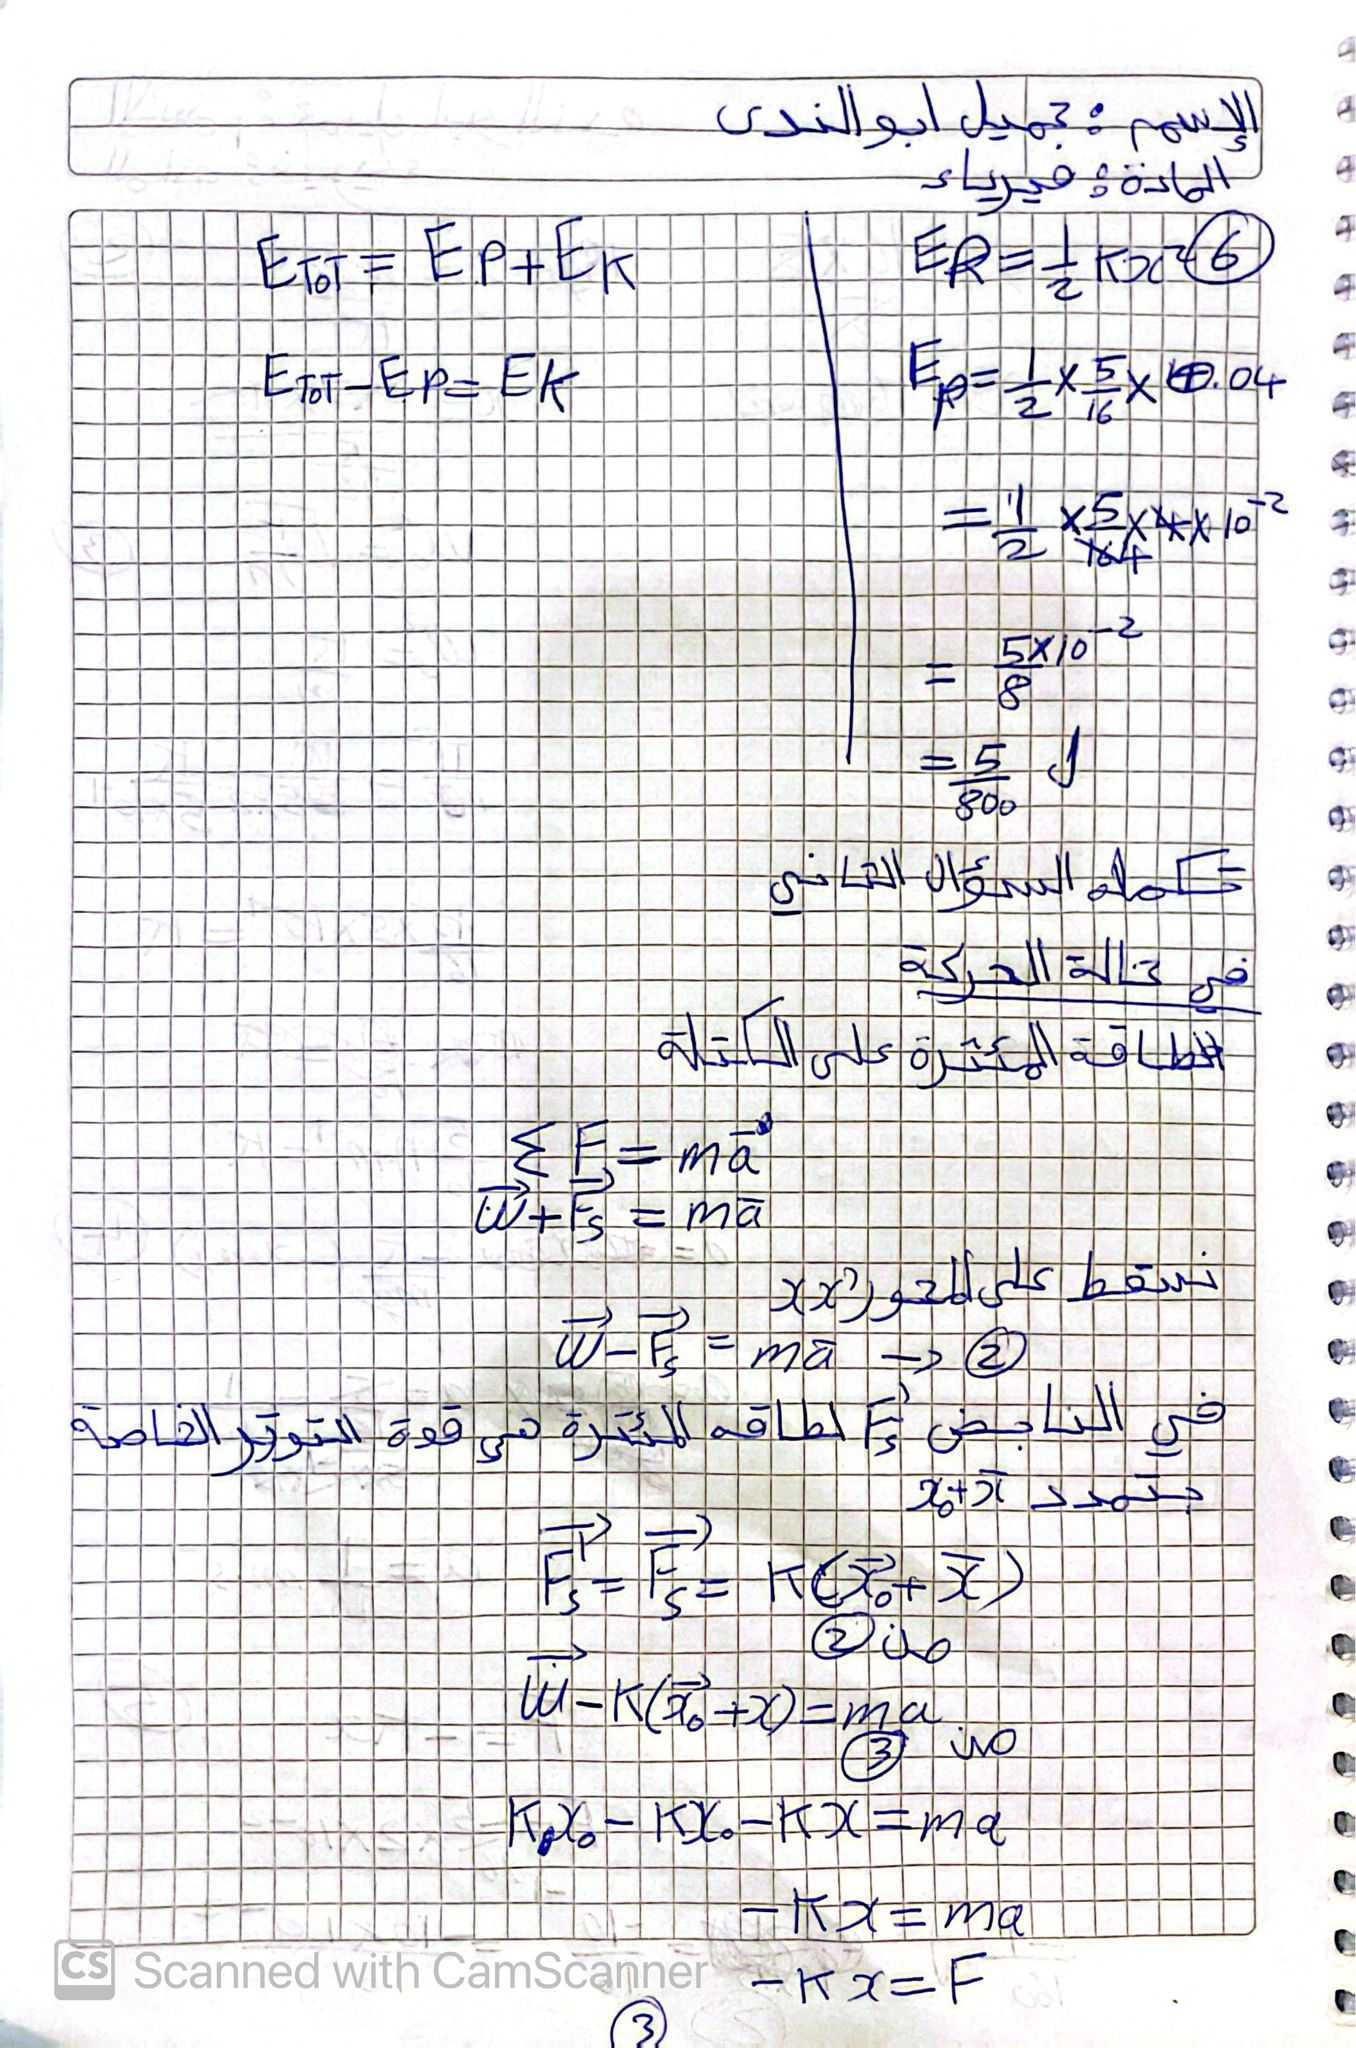 الإسم : جميل ابو الندى
المادة : فيزياء
⑥ EP = 1/2 Kx²
Ep = 1/2 × 5/16 × 0.04
= 1/2 × 5/16 4 × 4 × 10⁻²
= 5×10⁻²/8
= 5/800 J
E_TOT = EP + EK
E_TOT - EP = EK
تكملة السؤال الثاني
في حالة الحركة
الطاقة المؤثرة على الكتلة
Σ F = mā
W + Fs = mā
نسقط على المحور x x'
W - Fs = mā → ②
في النابض Fs' الطاقة المؤثرة هي قوة التوتر الخاصة
بتمدد x₀ + x̄
Fs' = Fs = K(x₀ + x̄)
من ②
W - K(x₀ + x) = ma
من ③
Kx₀ - Kx₀ - Kx = ma
-Kx = ma
-Kx = F
CS Scanned with CamScanner
③